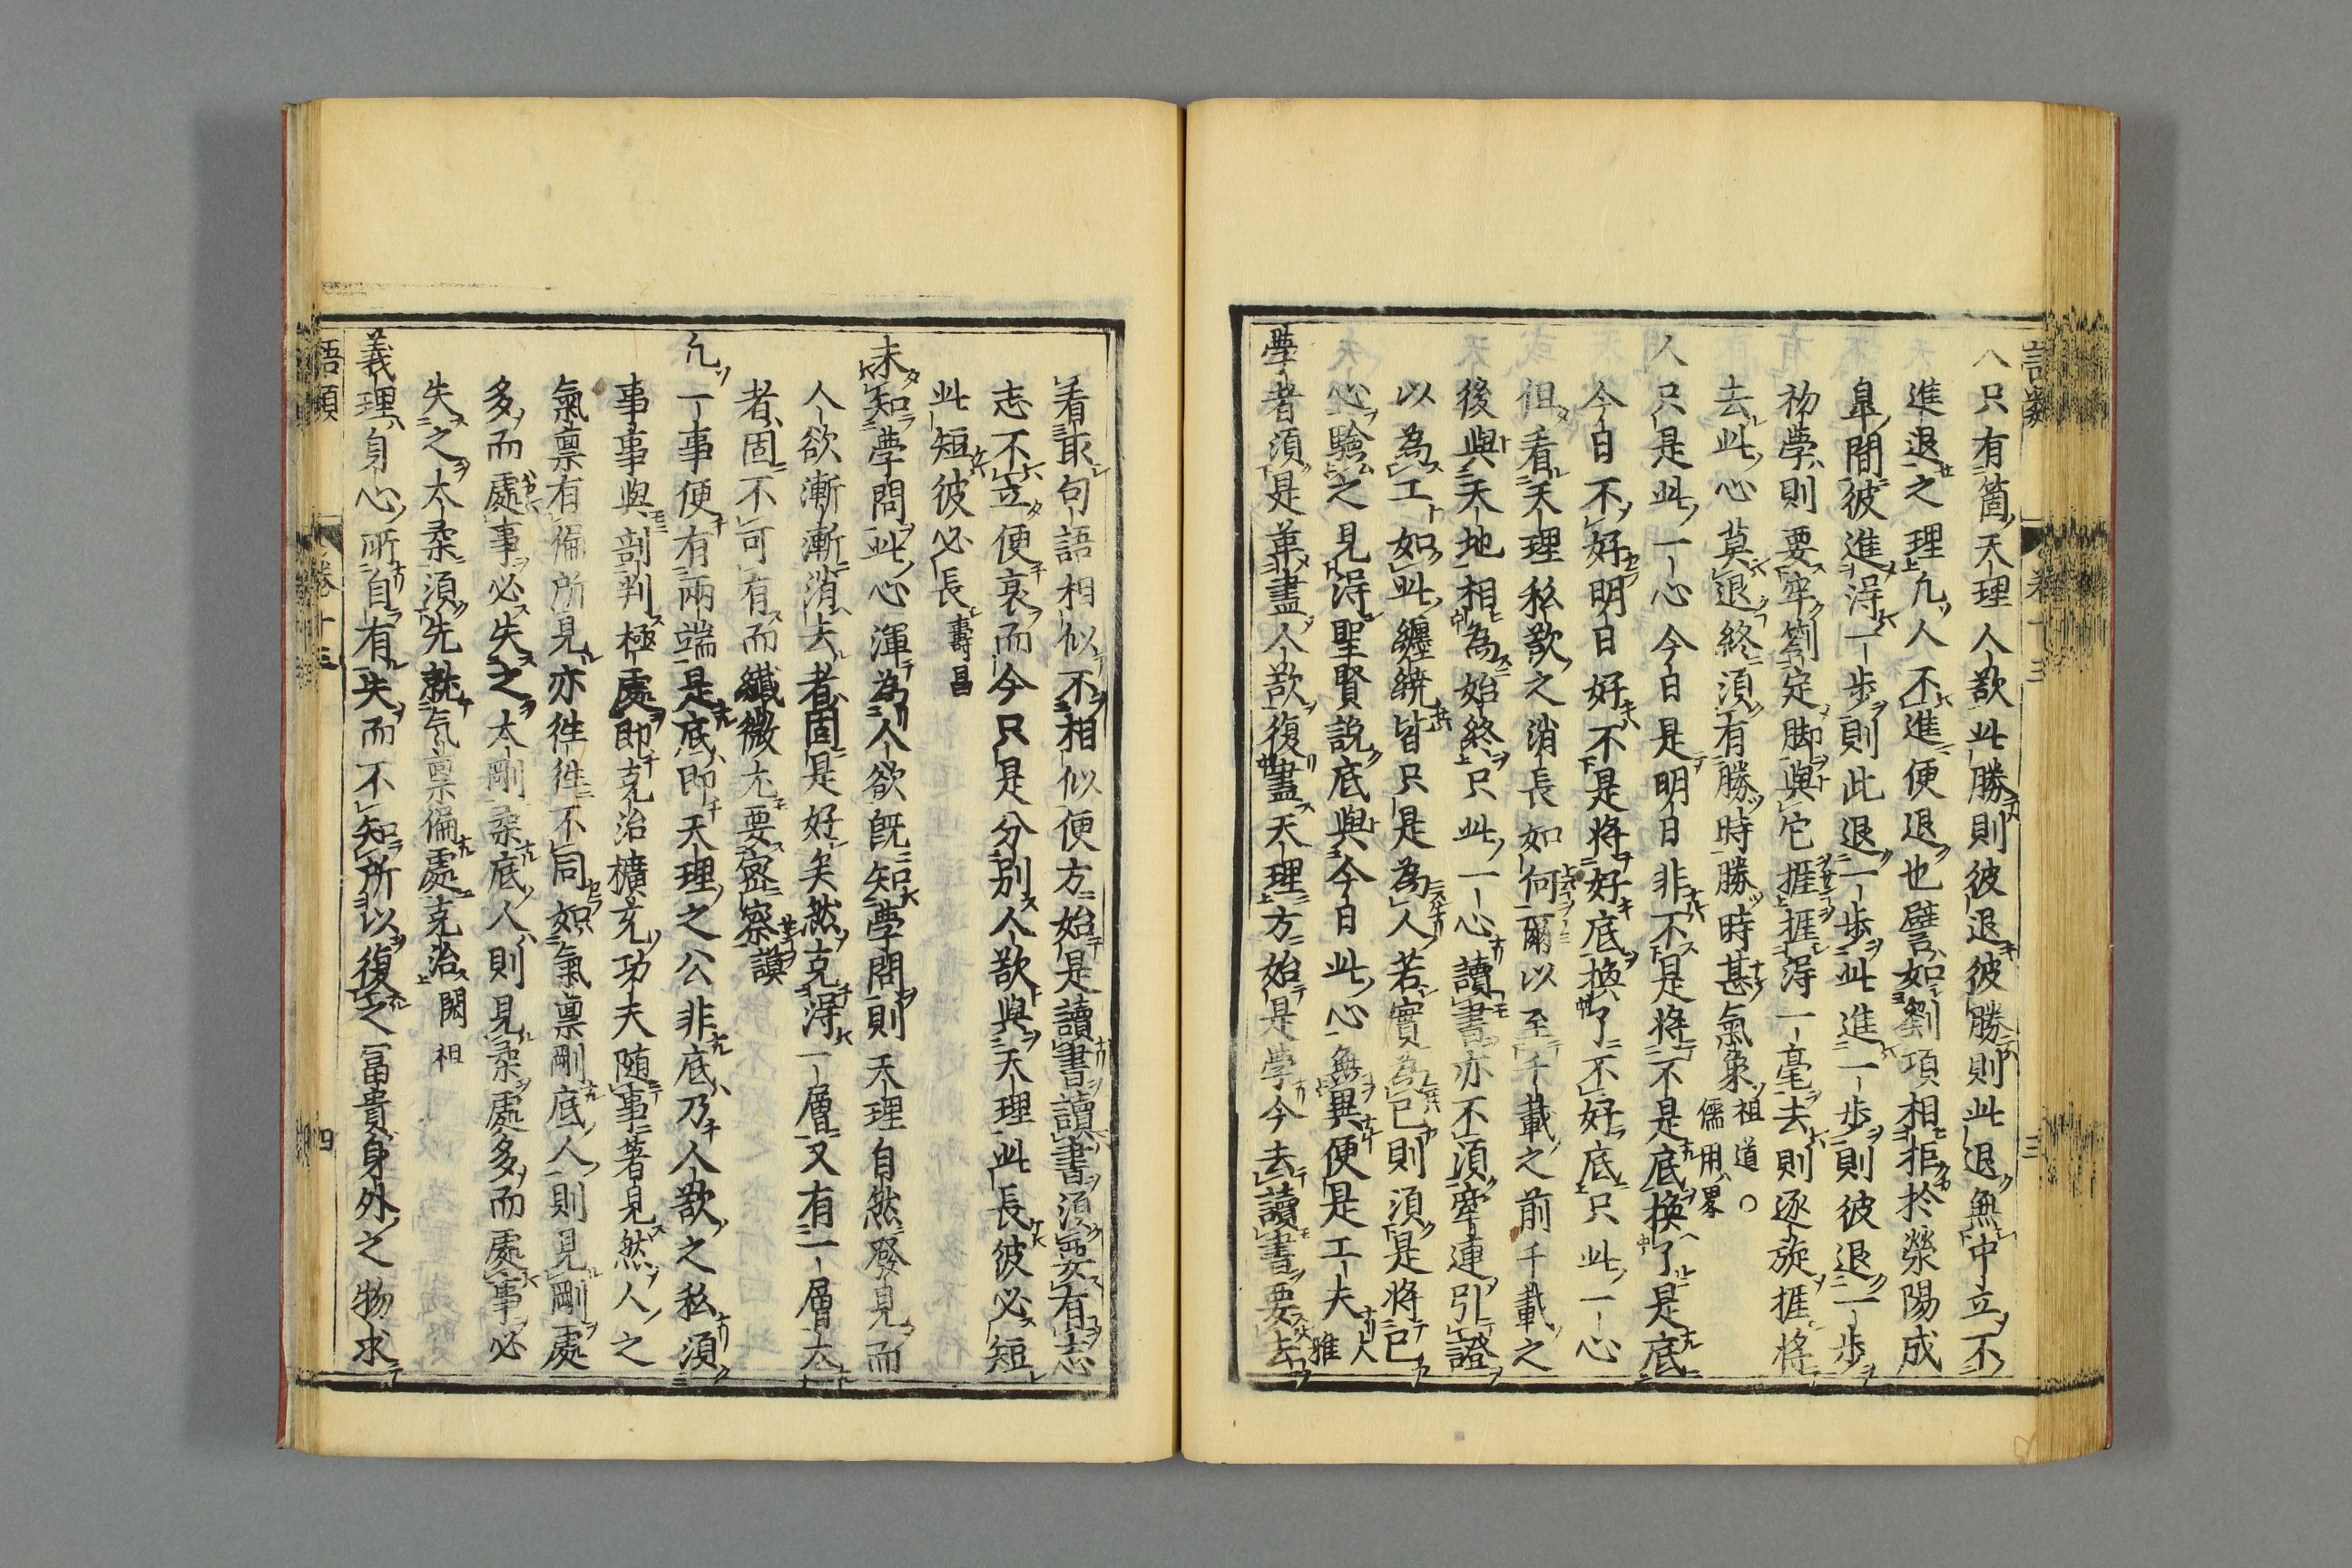 人只有箇天理人欲此勝則彼退彼勝則此退無中立不
進退之理凢人不進便退也譬如劉項相拒於滎陽成
皐間彼進得一歩則此退一歩此進一歩則彼退一歩
初學則要牢劄定脚與它捱捱得一毫去則逐旋捱將
去此心莫退終須有勝時勝時甚氣象祖道○儒用畧
人只是此一心今日是明日非不是將不是底換了是底
今日不好明日好不是將好底換了不好底只此一心
但看天理私欲之消長如何爾以至千載之前千載之
後與天地相為始終只此一心讀書亦不須牽連引證
以為工如此纏繞皆只是為人若實為已則須是將已
心驗之見得聖賢說底與今日此心無異便是工夫大雅
學者須是革盡人欲復盡天理方始是學今去讀書要去
看取句語相似不相似便方始是讀書讀書須要有志
志不立便衰而今只是分別人欲與天理此長彼必短
此短彼必長壽昌
未知學問此心渾為人欲既知學問則天理自然發見而
人欲漸漸消去者固是好矣然克得一層又有一層大
者固不可有而纖微尤要密察謨
凢一事便有兩端是底即天理之公非底乃人欲之私須
事事與剖判極處即克治擴充功夫随事著見然人之
氣禀有偏所見亦徃徃不同如氣禀剛底人則見剛處
多而處事必失之太剛柔底人則見柔處多而處事必
失之太柔須先就气禀偏處克治閎祖
義理身心所自有失而不知所以復之富貴身外之物求
語類
卷十三
三
語類
卷十三
四